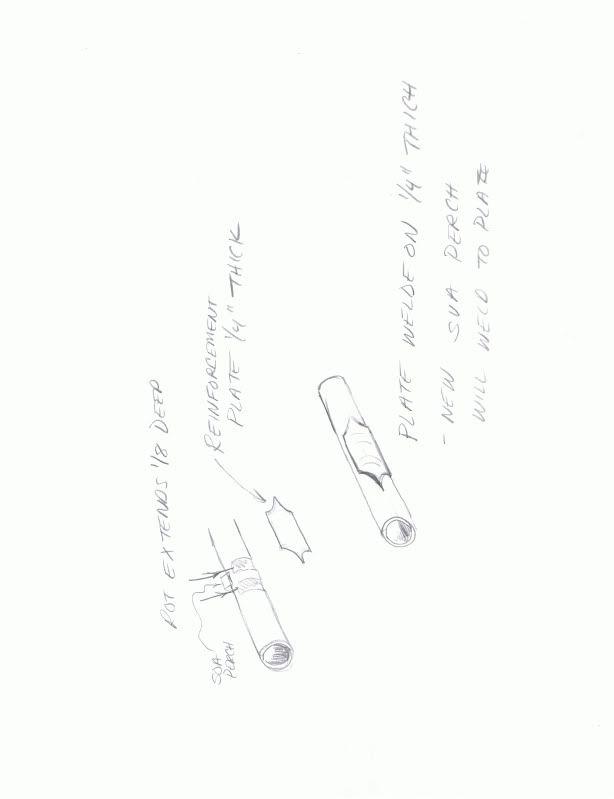 ROT EXTENDS 1/8 DEEP
SUA
PERCH
REINFORCEMENT
PLATE 1/4" THICK
PLATE WELDE ON 1/4" THICH
- NEW SUA PERCH
WILL WELD TO PLATE